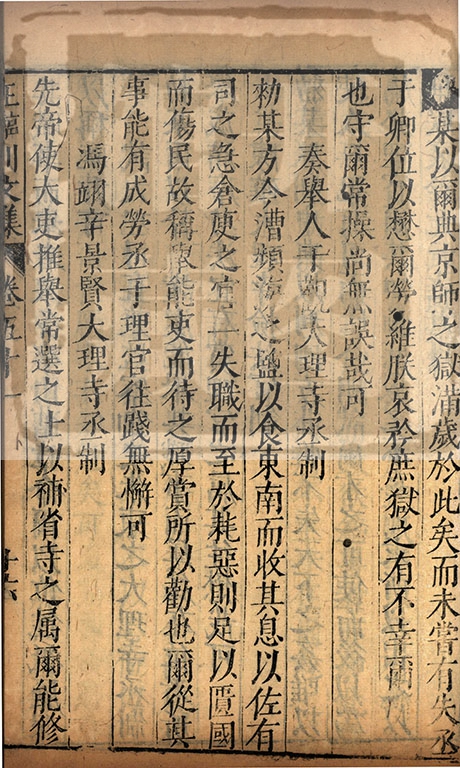 某以爾典京師之獄滿歲於此矣而未嘗有失丞
于卿位以懋爾勞維朕哀矜庶獄之有不幸爾
也守爾常操尚無誤哉可
奏舉人于觀大理寺丞制
勑某方今漕瀕海之鹽以食東南而收其息以佐有
司之急倉庾之官一失職而至於耗惡則足以匱國
而傷民故稱舉能吏而待之厚賞所以勸也爾從其
事能有成勞丞于理官往踐無懈可
馮翊辛景賢大理寺丞制
先帝使大吏推舉常選之士以補省寺之属爾能修
王臨川文集 卷五十一 十六